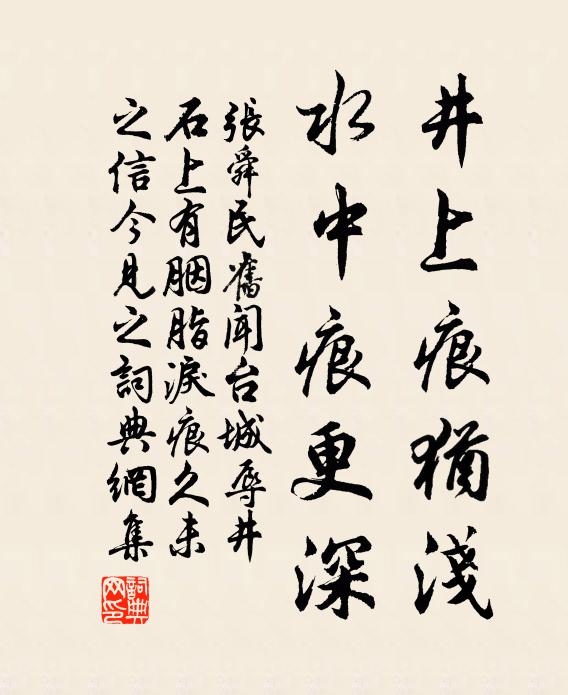 井上痕猶淺
水中痕更深
張舜民舊聞台城辱井
石上有胭脂淚痕久未
之信今見之詞典網集
詞典
网印